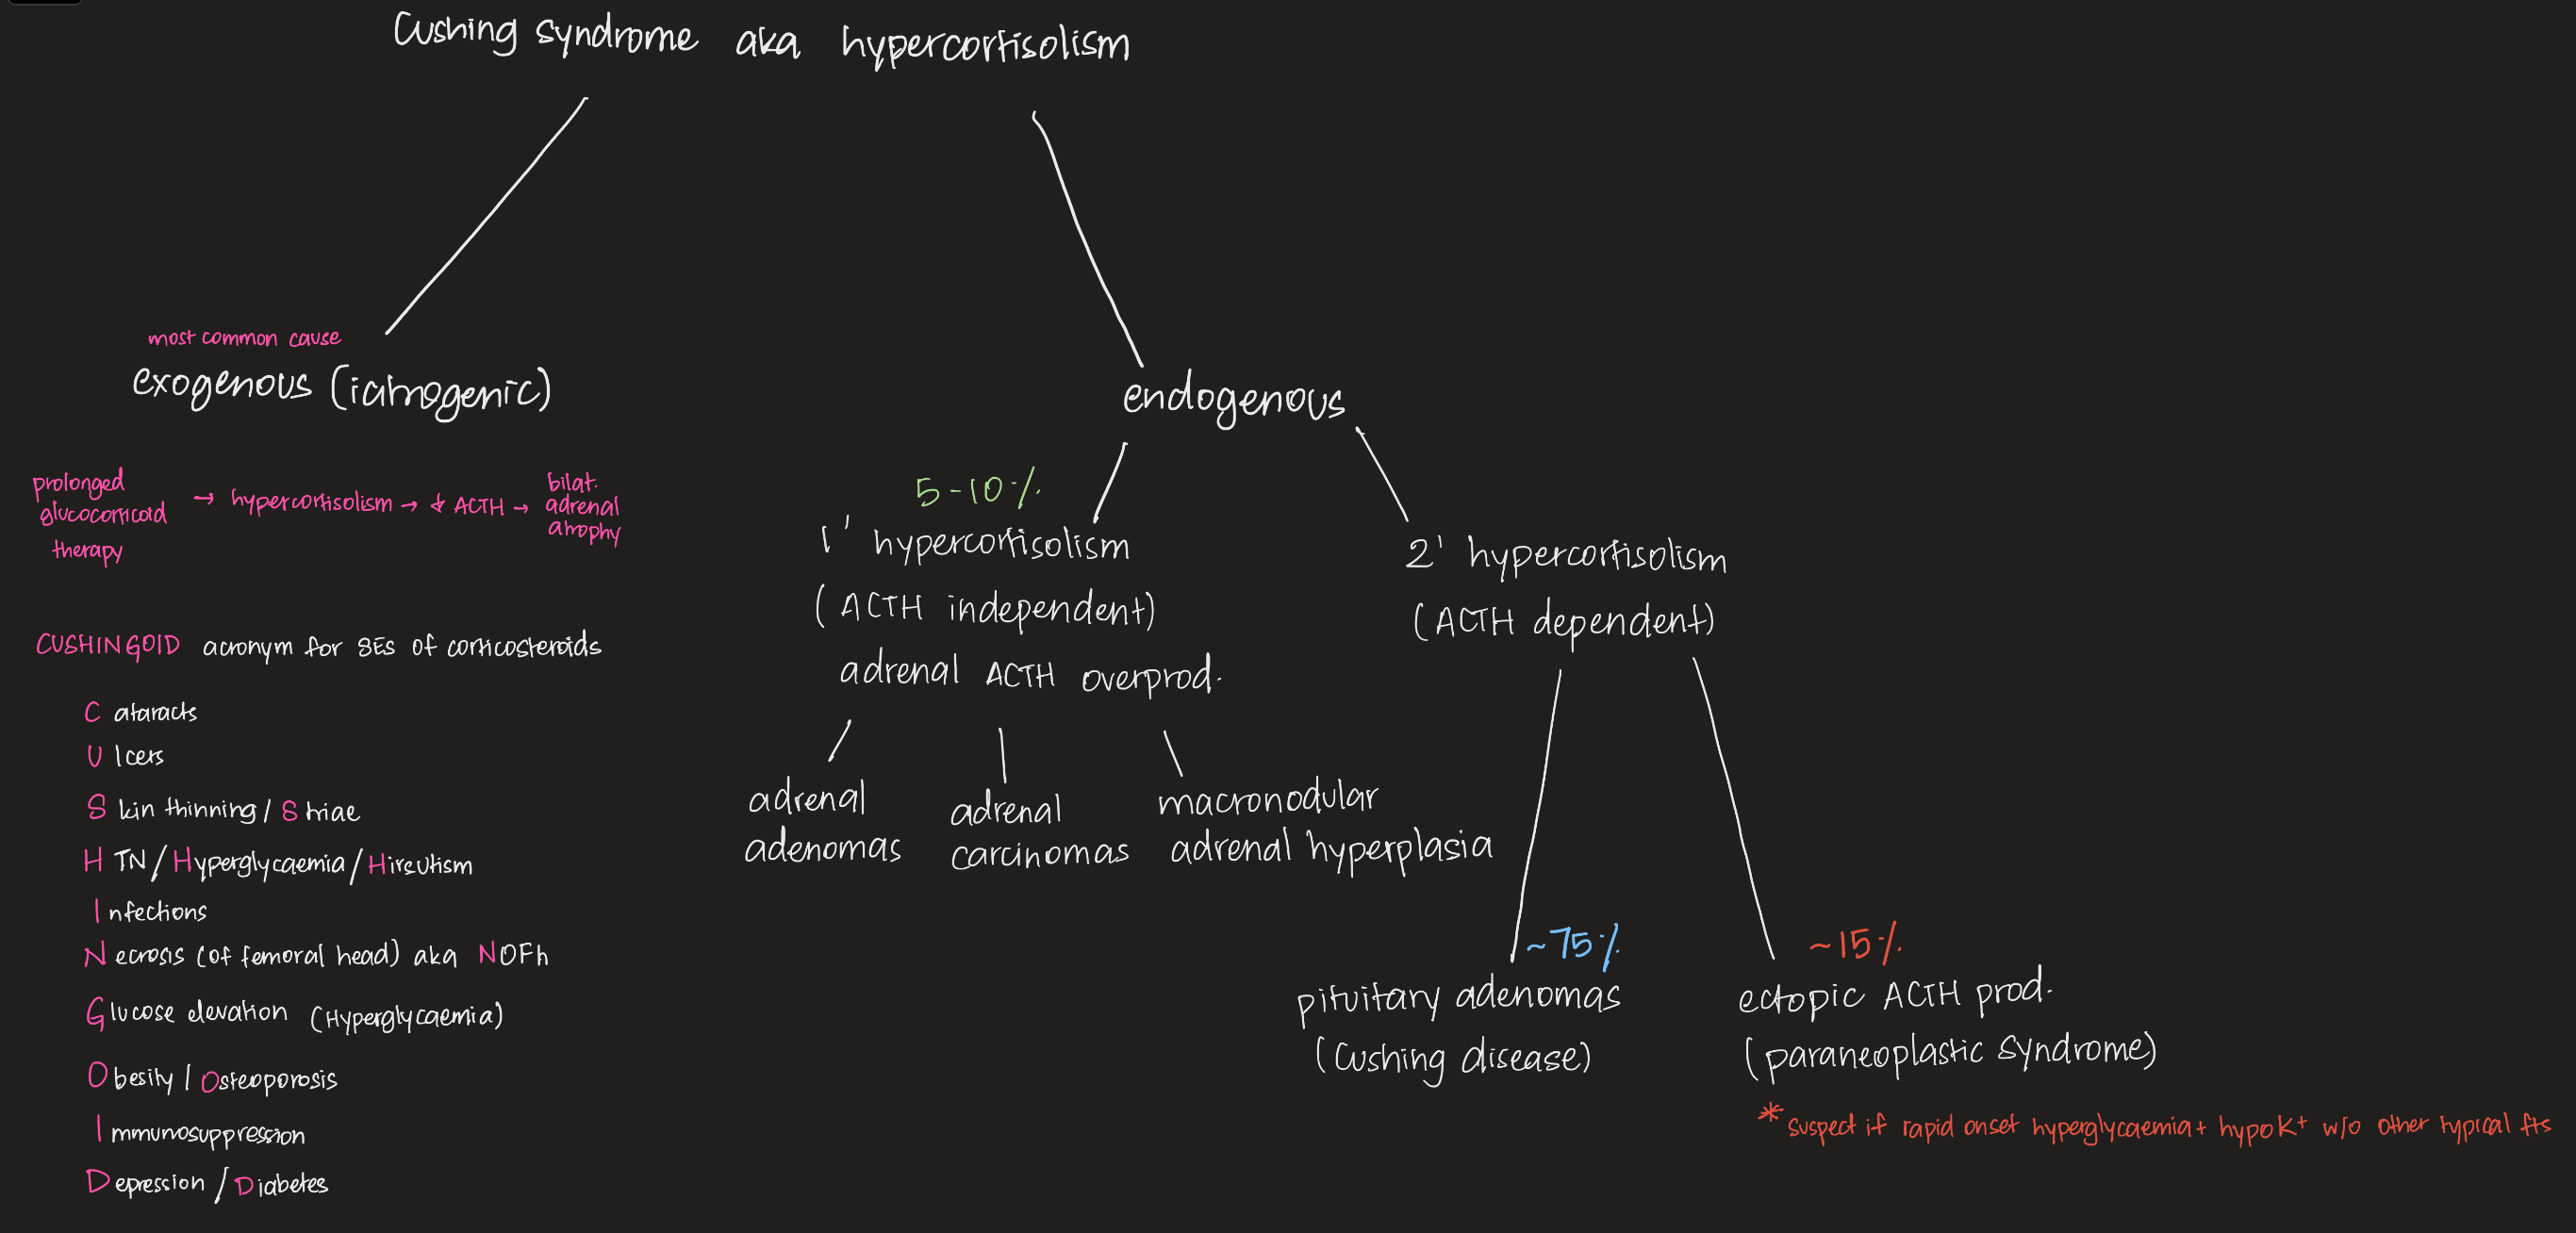 Cushing syndrome aka hypercortisolism
most common cause
exogenous (iatrogenic)
prolonged
glucocorticoid
therapy
→ hypercortisolism → ↓ ACTH →
bilat.
adrenal
atrophy
CUSHINGOID acronym for SEs of corticosteroids
Cataracts
Ulcers
Skin thinning / Striae
HTN / Hyperglycaemia / Hirsutism
Infections
Necrosis (of femoral head) aka NOFh
Glucose elevation (Hyperglycaemia)
Obesity / Osteoporosis
Immunosuppression
Depression / Diabetes
endogenous
5-10%
1' hypercortisolism
(ACTH independent)
adrenal ACTH overprod.
adrenal
adenomas
adrenal
carcinomas
macronodular
adrenal hyperplasia
2' hypercortisolism
(ACTH dependent)
~75%
pituitary adenomas
(Cushing disease)
~15%
ectopic ACTH prod.
(paraneoplastic syndrome)
* suspect if rapid onset hyperglycaemia + hypoK+ w/o other typical fts